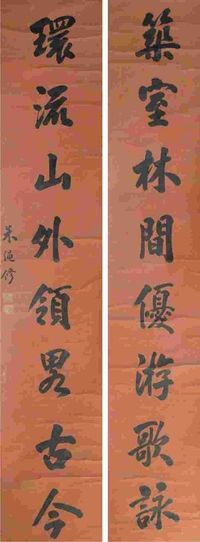 築室林間優游歌詠
環流山外領畧古今